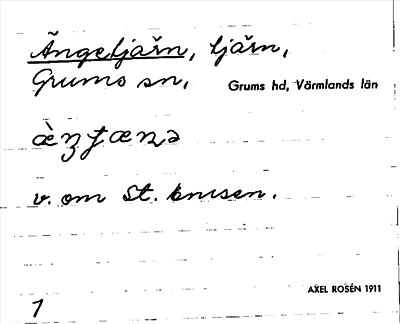 Ängetjärn, tjärn,
Grums sn,
Grums hd, Värmlands län
v. om St. bruksen.
AXEL ROSÉN 1911
1